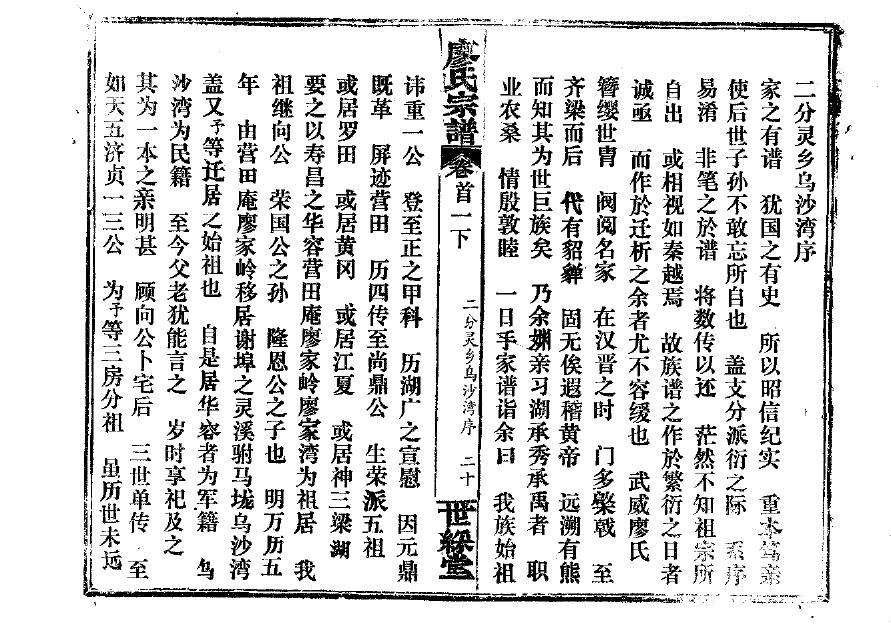 二分灵乡乌沙湾序
家之有谱 犹国之有史 所以昭信纪实 重本笃亲
使后世子孙不敢忘所自也 盖支分派衍之际 系序
易淆 非笔之於谱 将数传以还 茫然不知祖宗所
自出 或相视如秦越焉 故族谱之作於繁衍之日者
诚亟 而作於迁析之余者尤不容缓也 武威廖氏
簪缨世胄 阀阅名家 在汉晋之时 门多棨戟 至
齐梁而后 代有貂蝉 固无俟遐稽黄帝 远溯有熊
而知其为世巨族矣 乃余姻亲习湖承秀承禹者 职
业农桑 情殷敦睦 一日乎家谱诣余曰 我族始祖
廖氏宗谱
卷首一下
二分灵乡乌沙湾序 二十
世綵堂
讳重一公 登至正之甲科 历湖广之宣慰 因元鼎
既革 屏迹营田 历四传至尚鼎公 生荣派五祖
或居罗田 或居黄冈 或居江夏 或居神三梁湖
要之以寿昌之华容营田庵廖家岭廖家湾为祖居 我
祖继向公 荣国公之孙 隆恩公之子也 明万历五
年 由营田庵廖家岭移居谢埠之灵溪驸马垅乌沙湾
盖又予等迁居之始祖也 自是居华容者为军籍 乌
沙湾为民籍 至今父老犹能言之 岁时享祀及之
其为一本之亲明甚 顾向公卜宅后 三世单传 至
如天五济贞一三公 为予等三房分祖 虽历世未远